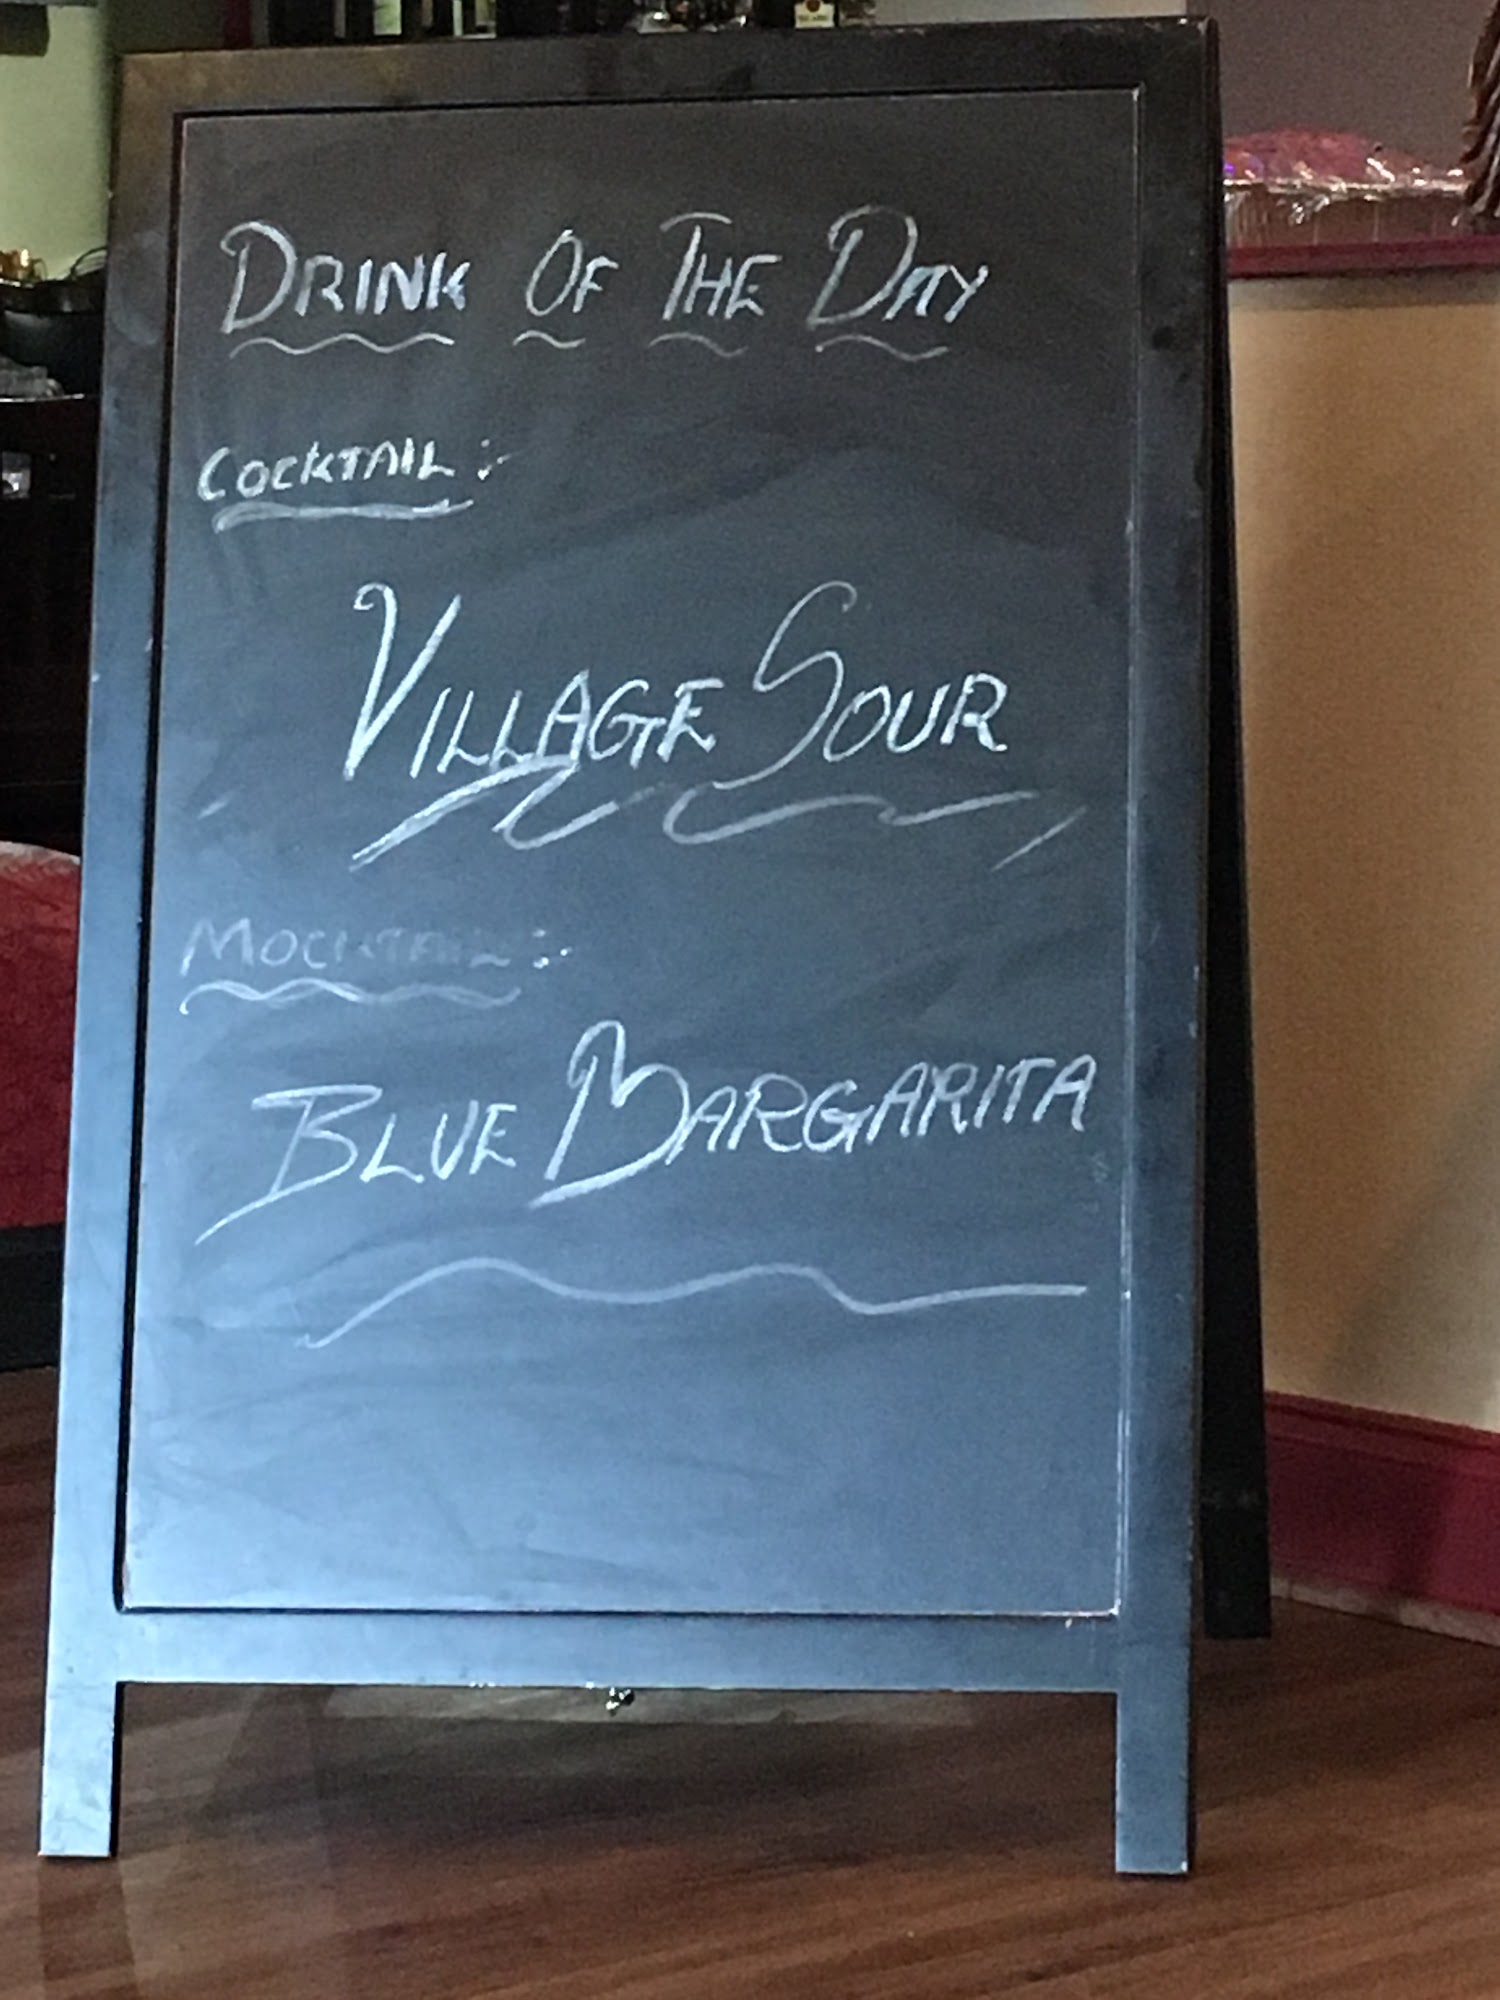 DRINK OF THE DAY
COCKTAIL :-
VILLAGE SOUR
MOCKTAIL :-
BLUE MARGARITA